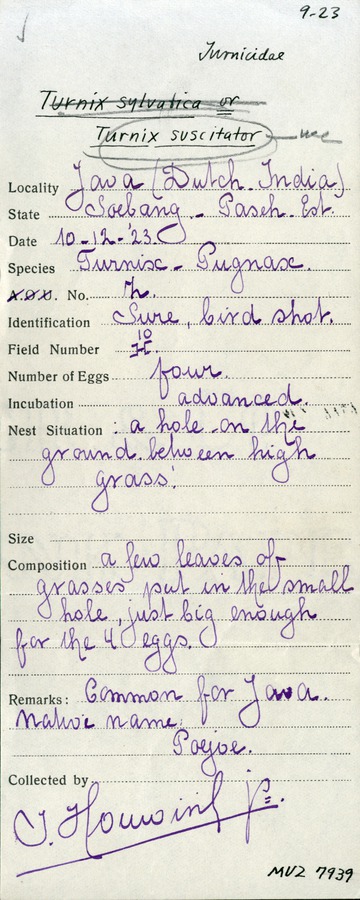 9-23
Turnicidae
Turnix sylvatica or
Turnix suscitator
Locality Java (Dutch India)
State Soebang - Paseh Est.
Date 10-12-'23.
Species Turnix - Pugnax.
A.O.U. No. 7.
Identification Sure, bird shot.
Field Number 10
Number of Eggs four.
Incubation advanced.
Nest Situation : a hole on the
ground between high
grass.
Size
Composition a few leaves of
grasses put in the small
hole, just big enough
for the 4 eggs.
Remarks: Common for Java.
Native name.
Poejoe.
Collected by
MVZ 7939